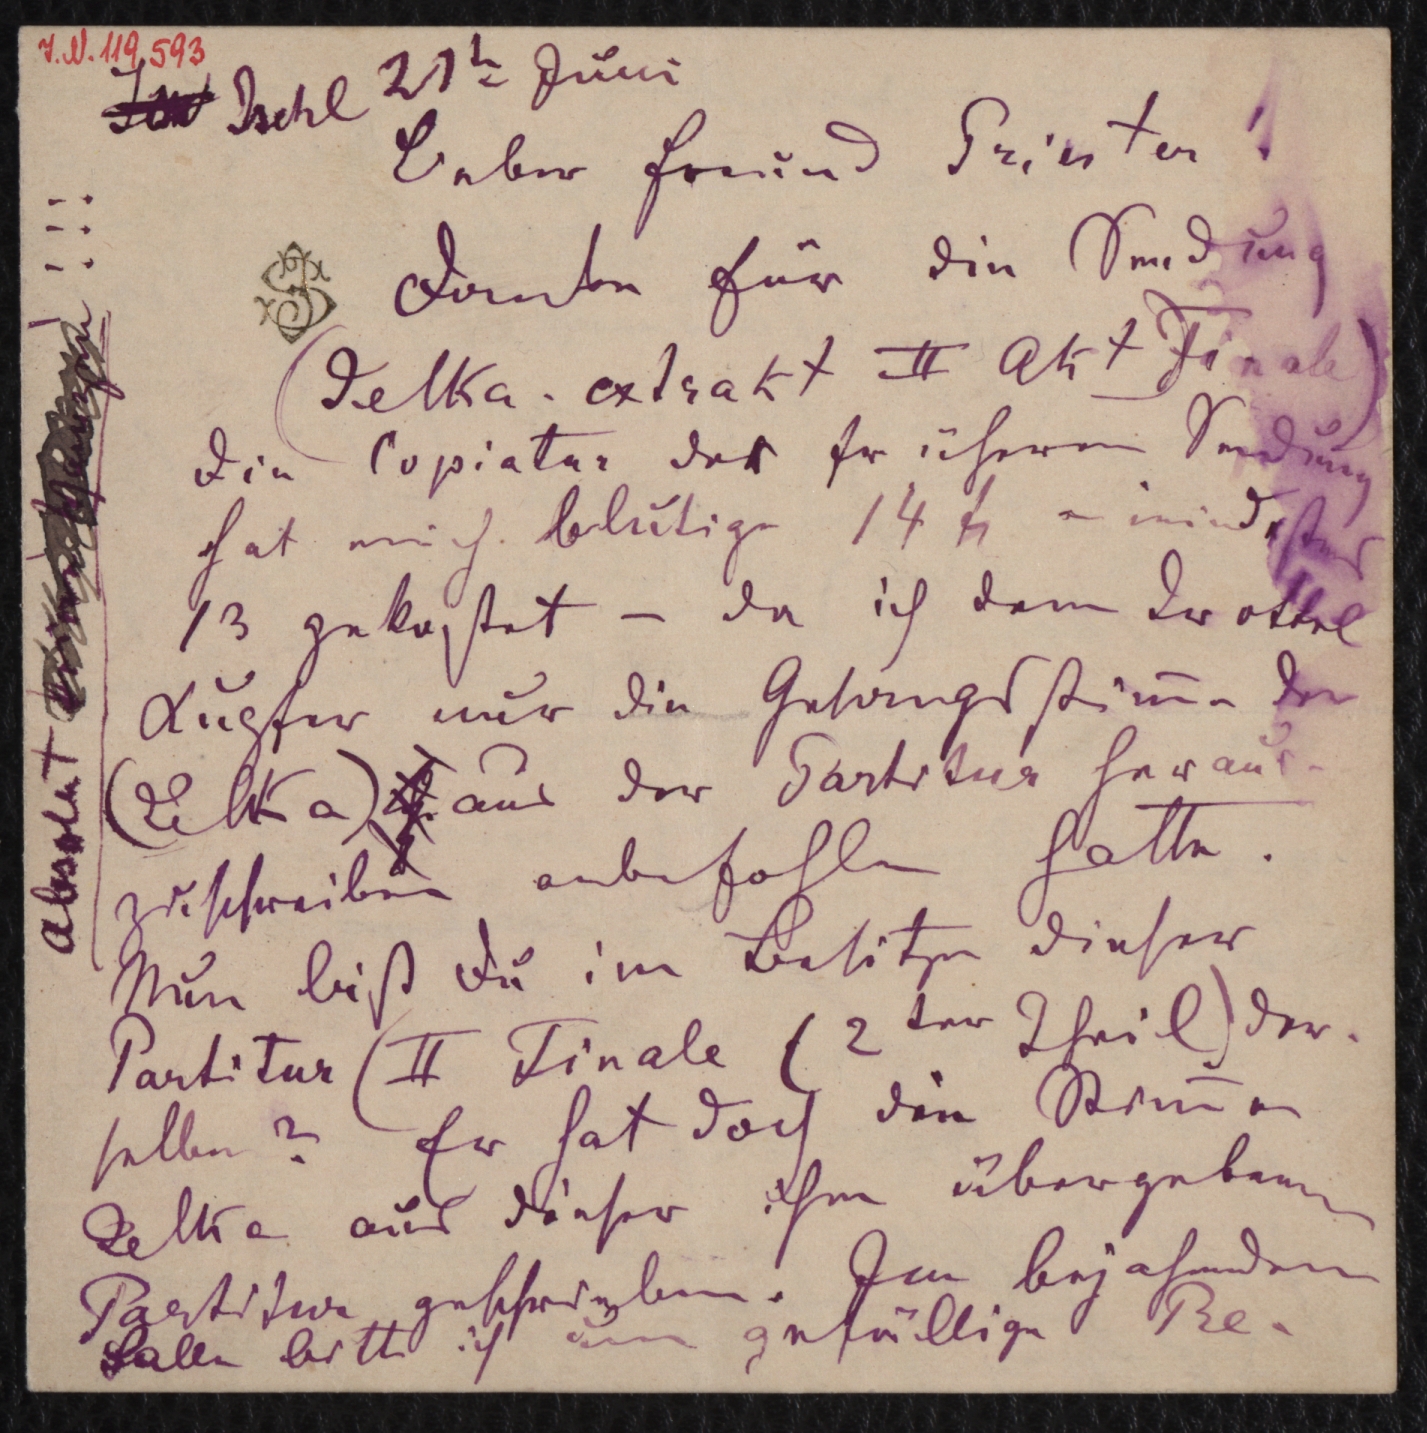 I.N. 119,593
Ischl 21t Juni
Lieber Freund Priester!
Danke für die Sendung
(Jelka-extrakt II Akt Finale)
Die Copiatur der früheren Sendung
hat mich blutige 14 fl mindestens
13 gekostet – da ich dem Trottel
nur die Gesangsstim̅e der
(Jelka) aus der Partitur heraus-
zuschreiben anbefohlen hatte.
Nun bist Du im Besitze dieser
Partitur (II Finale (2ter Theil) der-
selben? Er hat doch die Stim̅e
Jelka aus dieser ihm übergebenen
Partitur geschrieben. Im bejahenden
Falle bitte ich um gefällige Re-
absolut